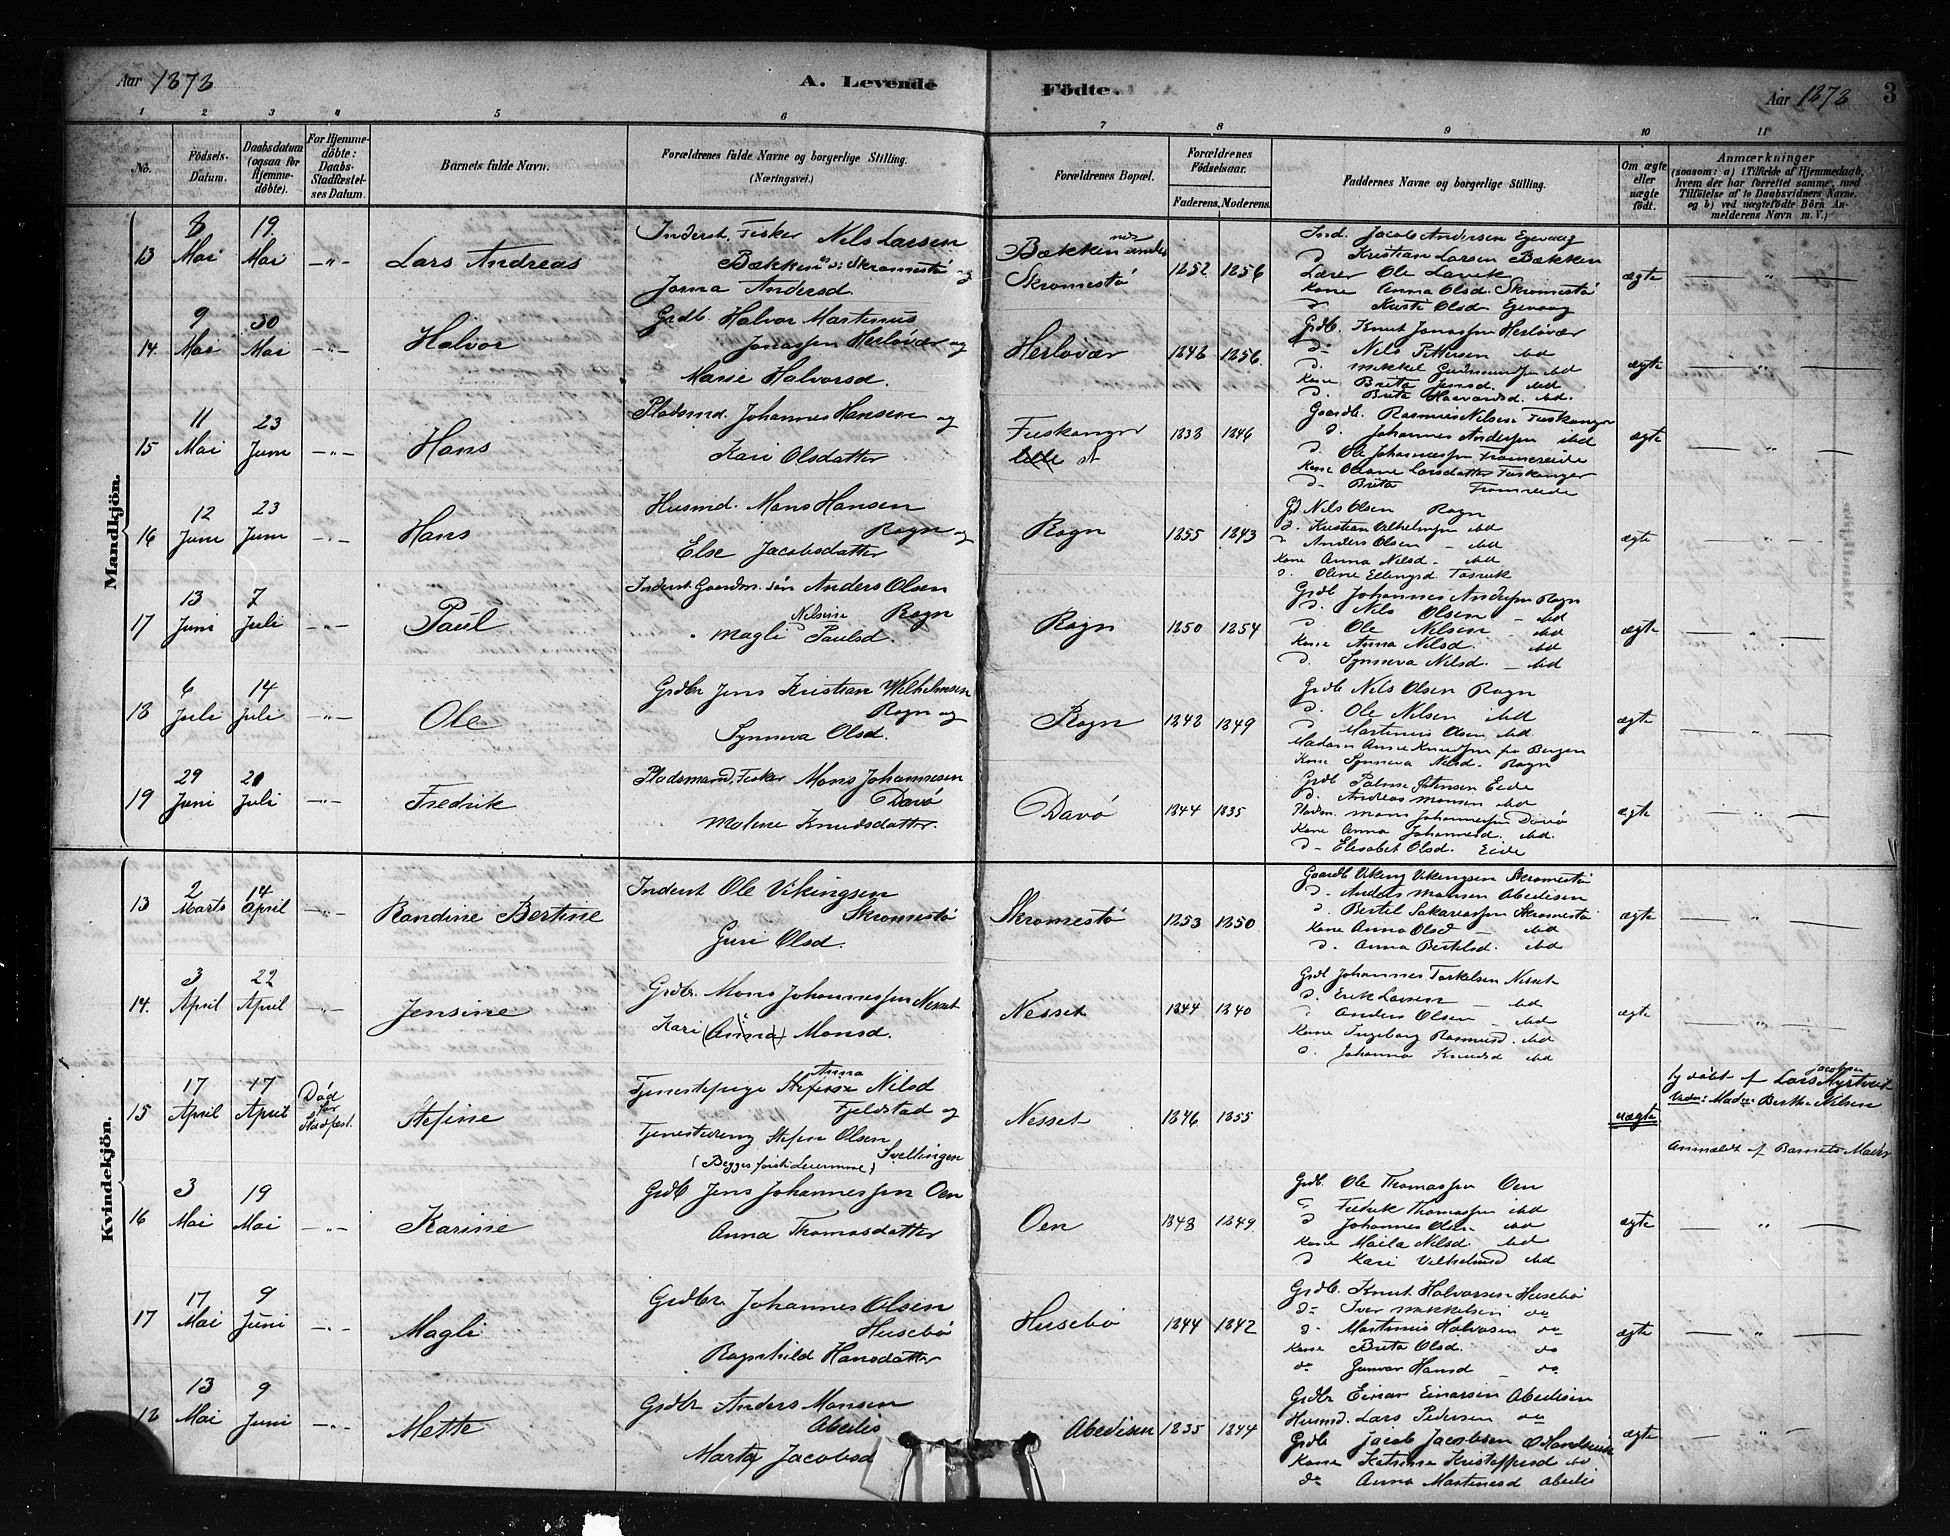 Aar 1878
A. Levende
Födte.
Aar 1878
3
1 2 3 4 5 6 7 8 9 10 11
No.
Födsels-
Datum.
Daabsdatum
(ogsaa for
Hjemme-
döbte).
For Hjemme-
döbte:
Daabs-
Stadfæstel-
ses Datum.
Barnets fulde Navn.
Forældrenes fulde Navne og borgerlige Stilling.
(Næringsvei.)
Forældrenes Bopæl.
Forældrenes
Födselsaar.
Faderens. Moderens.
Faddernes Navne og borgerlige Stilling.
Om ægte
eller
uægte
födt.
Anmærkninger
(saasom: a) i Tilfælde af Hjemmedaab,
hvem der har forrettet samme, med
Tilföielse af to Daabsvidners Navne,
og b) ved uægtefödte Börn An-
melderens Navn m. V.)
Mandkjön.
13
8
Mai
19
Mai
Lars Andreas
Inderst, Fisker Nils Larsen
Bækken Skromestö og
Andersd.
Bækken
Skromestö
1852 1856
Ind. Jacob Andersen Egevaag
D Kristian Larsen Bækken
Lærer Ole Lavik
Kone Anna Olsd. Skromestö
D. Olsd Egevaag
ægte
14.
9
Mai
30
Mai
Halvor
Grdb. Halvor Martinus
Jonassen Herlövær og
Marie Halvorsd.
Herlövær
1848 1856
Grdb. Knut Jonassen Herlövær
D. Nils Pettersen ibd
D. Mikkel ibd
Kone Brita Jensd. ibd
D. Brita Haavardsd. ibd.
ægte
15
11
Mai
23
Juni
Hans
Pladsmd. Johannes Hansen og
Kari Olsdatter
Tuskanger
1838 1846
Gaardb. Rasmus Nilsen Tuskanger
D. Johannes Andersen ibd
D. Ole Johannessen Tromereide
Kone Oliane Larsdatter Tuskanger
D. Brita Tromreide
ægte
16
12
Juni
23
Juni
Hans
Husmd. Mons Hansen
Rogn og
Else Jacobsdatter
Rogn
1855 1843
Gd Nils Olsen Rogn
D. Kristian Vilhelmsen ibd
D Anders Olsen - ibd
Kone Anna Nilsd - ibd
D. Oline Ellingsd.
ægte
17
13
Juni
7
Juli
Paul
Inderst Gaardm. sön Anders Olsen
Rogn
Magli Paulsd.
Rogn
1850 1854
Grdb. Johannes Andersen Rogn
D. Nils Olsen - ibd
D Ole Nilsen - ibd
Kone Anna Nilsd. ibd
D. Synneva Nilsd. - ibd
ægte
18
6
Juli
14
Juli
Ole
Grdbr Jens Kristian Wilhelmsen
Rogn og
Synneva Olsd.
Rogn
1848 1849
Grdb Nils Olsen Rogn
D. Ole Nilsen ibd
D Martinus Olsen ibd
Madam Anna Knudsen fra Bergen
Kone Synneva Nilsd. Rogn
ægte
19
29
Juni
21
Juli
Fredrik
Pladsmand, Fisker Mons Johannesen
Davö
Malene Knudsdatter.
Davö
1844 1835
Grdb Eide
D. Andreas Monsen ibd
Mons Johannessen Davö
Kone Anna Johannesd. ibd.
D- Elisabet Olsd. Eide
ægte
Kvindekjön.
13
2
Marts
14
April
Randine Bertine
Inderst Ole Vikingsen
Skromestö
Guri Olsd.
Skromestö
1853 1850
Gaardb Viking Vikingsen Skromestö
D. Anders Monsen Abedisen
D. Bertel Sakariassen Skromestö
Kone Anna Olsd - ibd
D. Anna Bertelsd. ibd
ægte
14.
3
April
22
April
Jensine
Grdbr. Mons Johannessen Nesset
Kari (Anna) Monsd.
Nesset
1844 1840
Grdb Johannes Torkelsen Nesset
D. Erik Larsen - ibd
D Anders Olsen - ibd
Kone Ingeborg Rasmusd. ibd
D. Johanna Knudsd ibd
ægte
15
17
April
17
April
Död
för
Stadfæst.
Stefine
Tjenestepige Anna Nilsd
Fjeldstad og
Tjenestedreng Stefen Olsen
Svellingen
(Begges förste Leiermaal)
Nesset
1846 1855
uægte
Hj döbt af Lars Jacobsen Myrtveit
Anmeldt af Barnets Moder
16
3
Mai
19
Mai
Karine
Grdb Jens Johannessen Oen
Anna Thomasdatter
Oen
1848 1849.
Grdb. Ole Thomassen Oen
D Fredrik Thomassen ibd
D Johannes Olsen ibd
Kone Maila Nilsd ibd
D Kari Vilhelmsd ibd
ægte
17
17
Mai
9
Juni
Magli
Grdbr. Johannes Olsen
Husebö
Ragnhild Hansdatter
Husebö
1844 1842
Grdb. Knut Halvorsen Husebö
D- Iver Mikkelsen do
D. Martinus Halvorsen do
Kone Brita Olsd. do
do Gunvor Hansd - do
ægte
18
13
Mai
9
Juni
Mette
Grdbr Anders Monsen
Abedis
Marta Jacobsd
Abedisen
1835 1844
Grdbr Einar Einarsen Abedisen
Husmd. Lars Pedersen do
Grdb Jacob Jacobsen
Kone Katrine Kristoffersd do
do Anna Martinusd Abedis
ægte